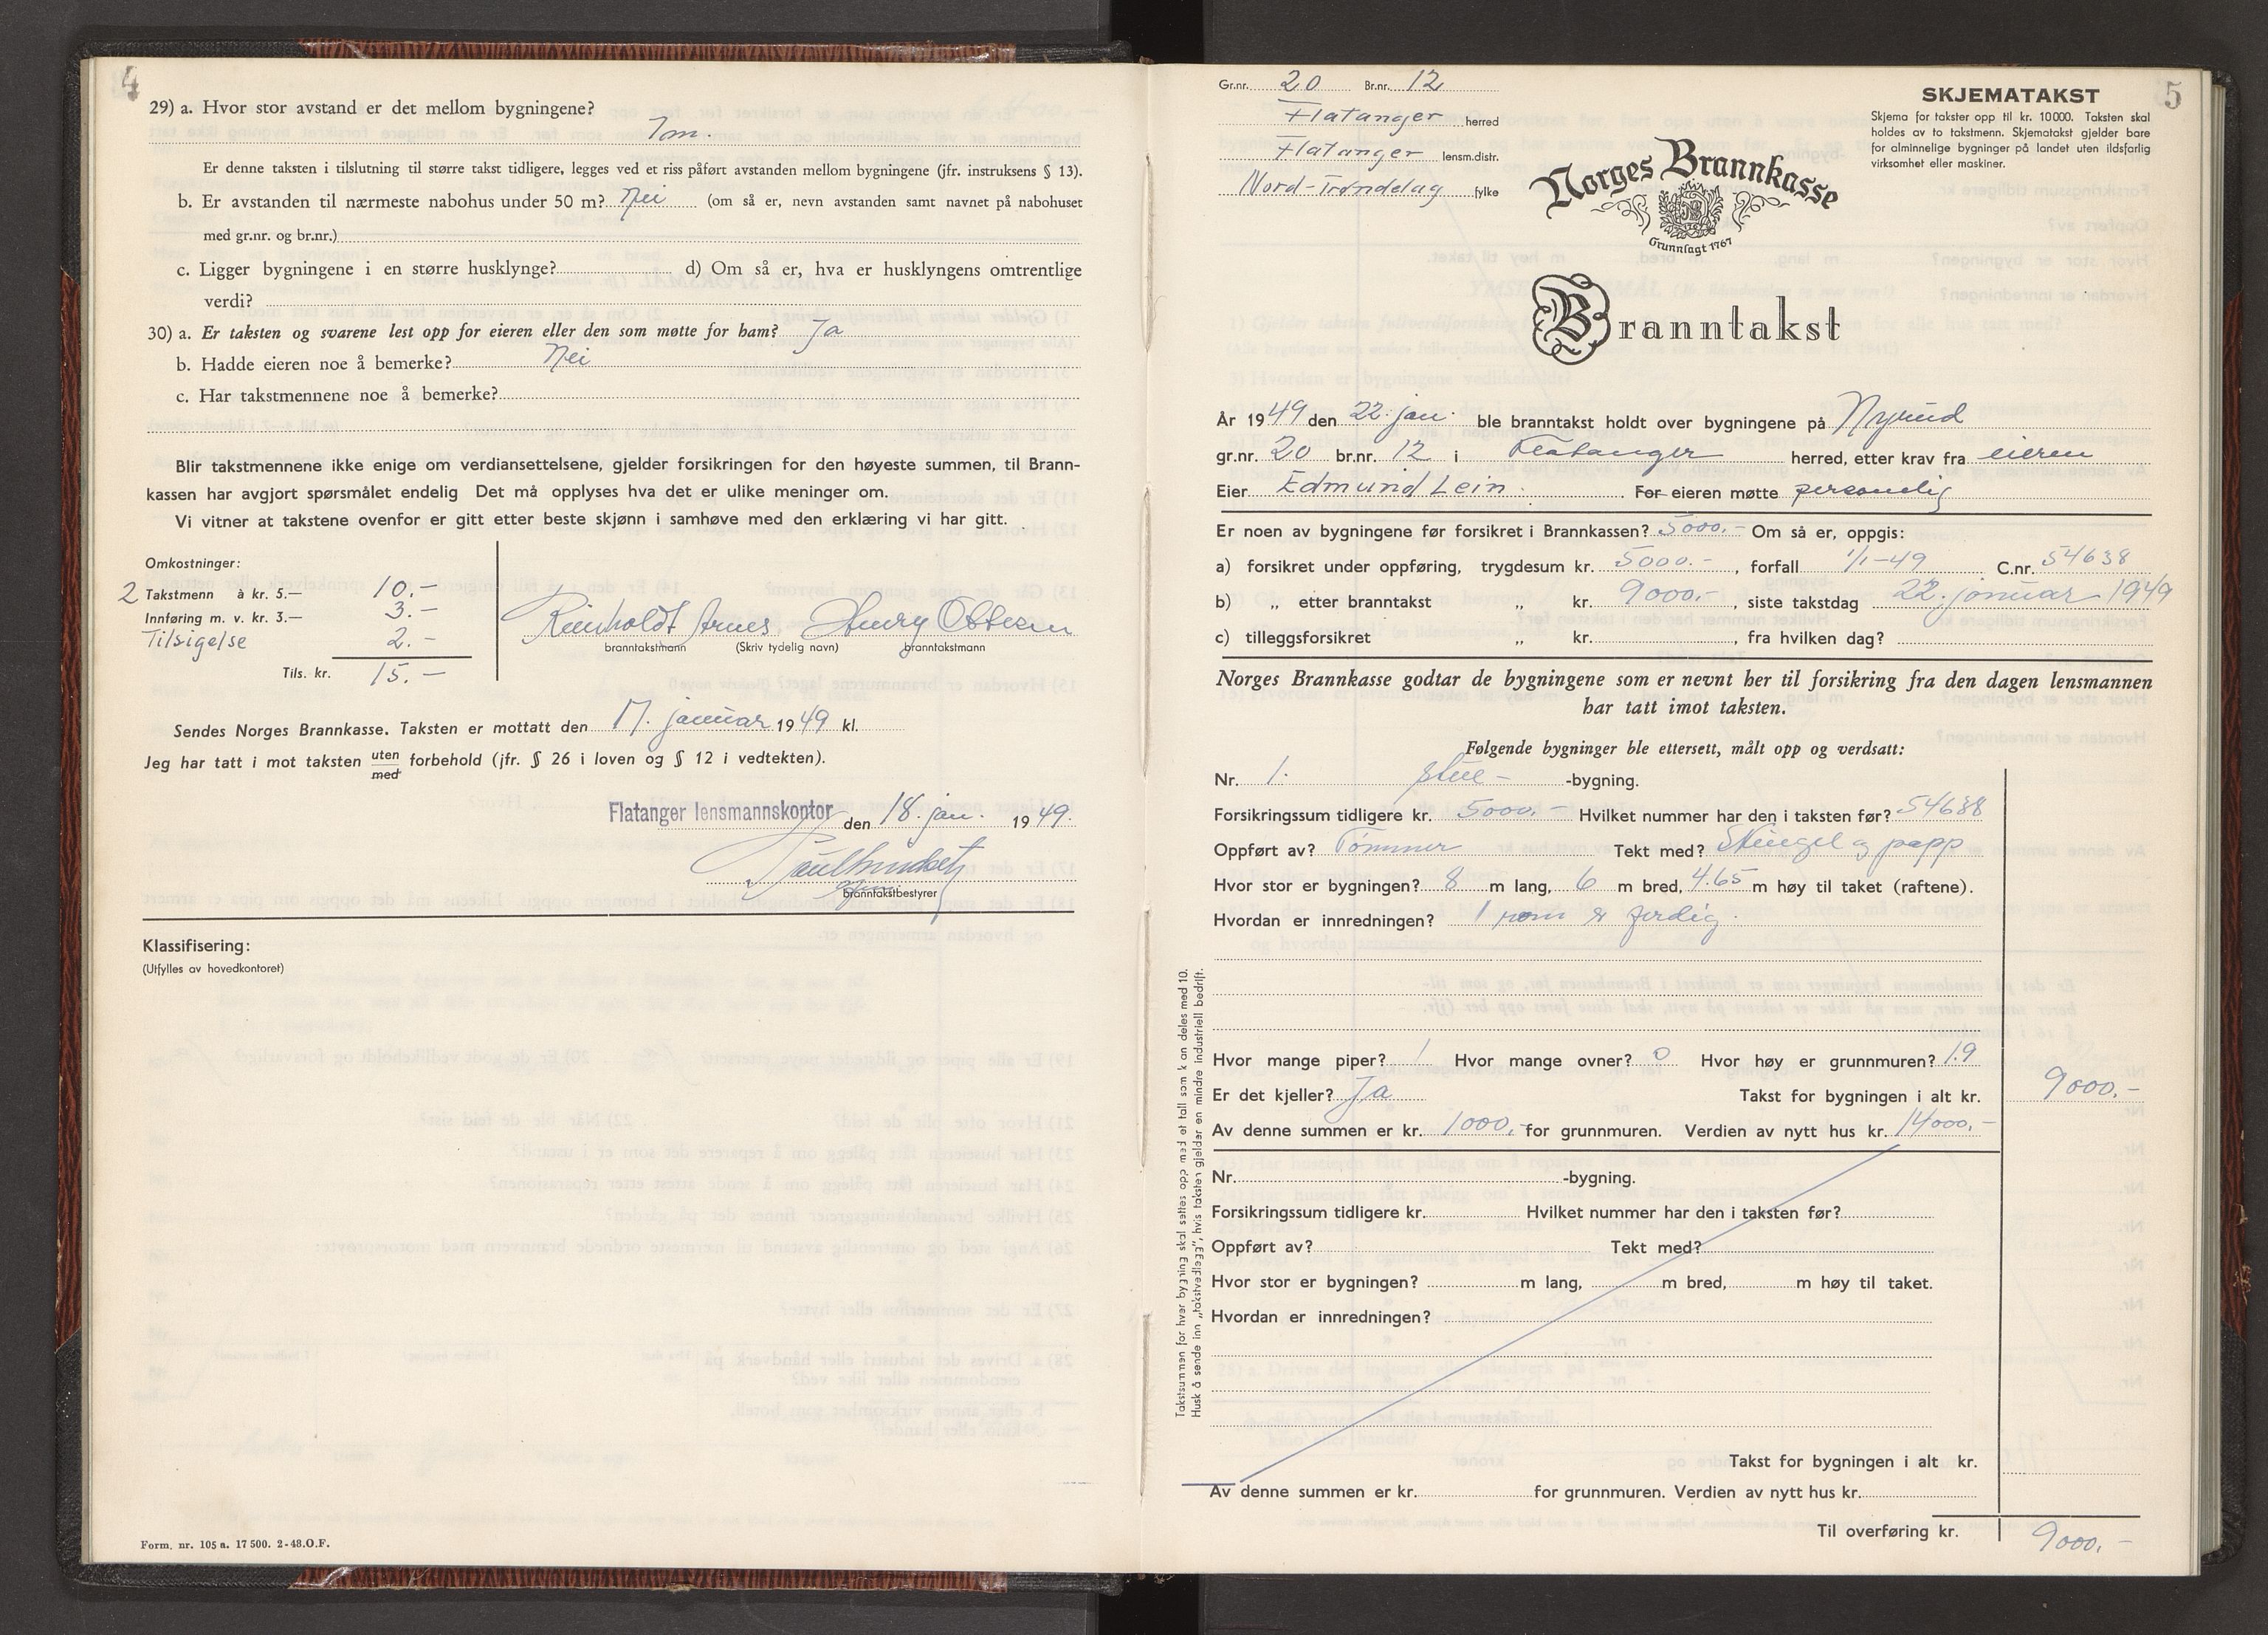 4
29) a. Hvor stor avstand er det mellom bygningene?
7m.
Er denne taksten i tilslutning til større takst tidligere, legges ved et riss påført avstanden mellom bygningene (jfr. instruksens § 13).
b. Er avstanden til nærmeste nabohus under 50 m? Nei (om så er, nevn avstanden samt navnet på nabohuset
med gr.nr. og br.nr.)
c. Ligger bygningene i en større husklynge? d) Om så er, hva er husklyngens omtrentlige
verdi?
30) a. Er taksten og svarene lest opp for eieren eller den som møtte for ham? Ja
b. Hadde eieren noe å bemerke? Nei
c. Har takstmennene noe å bemerke?
Blir takstmennene ikke enige om verdiansettelsene, gjelder forsikringen for den høyeste summen, til Brann-
kassen har avgjort spørsmålet endelig Det må opplyses hva det er ulike meninger om.
Vi vitner at takstene ovenfor er gitt etter beste skjønn i samhøve med den erklæring vi har gitt.
Omkostninger:
2 Takstmenn à kr. 5.— 10.-
Innføring m. v. kr. 3.— 3.-
Tilsigelse 2.-
Tils. kr. 15.-
Reinholdt Henry
branntakstmann (Skriv tydelig navn) branntakstmann
Sendes Norges Brannkasse. Taksten er mottatt den 17. januar 1949 kl.
Jeg har tatt i mot taksten uten forbehold (jfr. § 26 i loven og § 12 i vedtekten).
med
Flatanger lensmannskontor den 18. jan. 1949.
branntakstbestyrer
Klassifisering:
(Utfylles av hovedkontoret)
Form. nr. 105 a. 17 500. 2-48.O.F.
5
Gr.nr. 20 Br.nr. 12
Flatanger herred
Flatanger lensm.distr.
Nord-Trøndelag fylke
SKJEMATAKST
Skjema for takster opp til kr. 10000. Taksten skal
holdes av to takstmenn. Skjematakst gjelder bare
for alminnelige bygninger på landet uten ildsfarlig
virksomhet eller maskiner.
Norges Brannkasse
Grunnlagt 1767
Branntakst
År 1949 den 22. jan. ble branntakst holdt over bygningene på Nyrud
gr.nr. 20 br.nr. 12 i Flatanger herred, etter krav fra eieren
Eier Edmund Lein. For eieren møtte personlig
Er noen av bygningene før forsikret i Brannkassen? 5000.- Om så er, oppgis:
a) forsikret under oppføring, trygdesum kr. 5000.-, forfall 1/1-49 C.nr. 54638
b) „ etter branntakst „ kr. 9000.-, siste takstdag 22. januar 1949
c) tilleggsforsikret „ kr. , fra hvilken dag?
Norges Brannkasse godtar de bygningene som er nevnt her til forsikring fra den dagen lensmannen
har tatt imot taksten.
Følgende bygninger ble ettersett, målt opp og verdsatt:
Nr. 1. stue- -bygning.
Forsikringssum tidligere kr. 5000.- Hvilket nummer har den i taksten før? 54638
Oppført av? Tømmer Tekt med? Shingel og papp
Hvor stor er bygningen? 8 m lang, 6 m bred, 4.65 m høy til taket (raftene).
Hvordan er innredningen? 1 rom er ferdig.
Hvor mange piper? 1 Hvor mange ovner? 0 Hvor høy er grunnmuren? 1.9
Er det kjeller? Ja Takst for bygningen i alt kr. 9000.-
Av denne summen er kr. 1000.- for grunnmuren. Verdien av nytt hus kr. 14000.-
Nr. -bygning.
Forsikringssum tidligere kr. Hvilket nummer har den i taksten før?
Oppført av? Tekt med?
Hvor stor er bygningen? m lang, m bred, m høy til taket.
Hvordan er innredningen?
Takst for bygningen i alt kr.
Av denne summen er kr. for grunnmuren. Verdien av nytt hus kr.
Til overføring kr. 9000.-
Takstsummen for hver bygning skal settes opp med et tall som kan deles med 10.
Husk å sende inn „takstvedlegg", hvis taksten gjelder en mindre industriell bedrift.